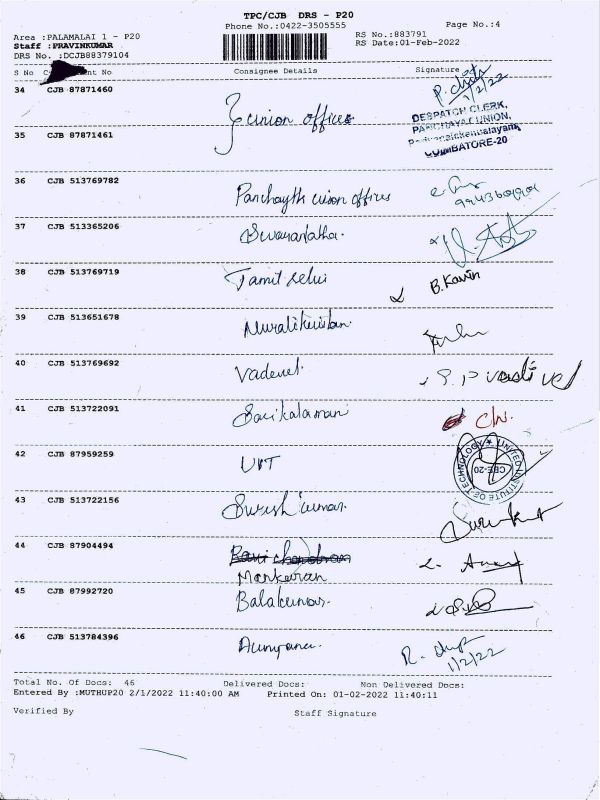 TPC/CJB DRS - P20
Phone No.:0422-3505555
Page No.:4
Area :PALAMALAI 1 - P20
RS No.:883791
Staff :PRAVINKUMAR
RS Date:01-Feb-2022
DRS No. :DCJB88379104
S No Consignment No Consignee Details Signature
34 CJB 87871460
union offices
P. 1/2/22
DESPATCH CLERK,
PANCHAYAT UNION,
COIMBATORE-20
35 CJB 87871461
36 CJB 513769782 Panchayth union offices
37 CJB 513365206
38 CJB 513769719 Tamil selvi B. Kavin
39 CJB 513651678 Muralikrishnan
40 CJB 513769692 Vadevel. S. P Vadivel
41 CJB 513722091
42 CJB 87959259 UIT
UNITED INSTITUTE OF TECHNOLOGY
CBE-20
43 CJB 513722156 Suresh kumar
44 CJB 87904494 Ravichandran
45 CJB 87992720 Balakumar
46 CJB 513784396
R. 1/2/22
Total No. Of Docs: 46 Delivered Docs: Non Delivered Docs:
Entered By :MUTHUP20 2/1/2022 11:40:00 AM Printed On: 01-02-2022 11:40:11
Verified By Staff Signature